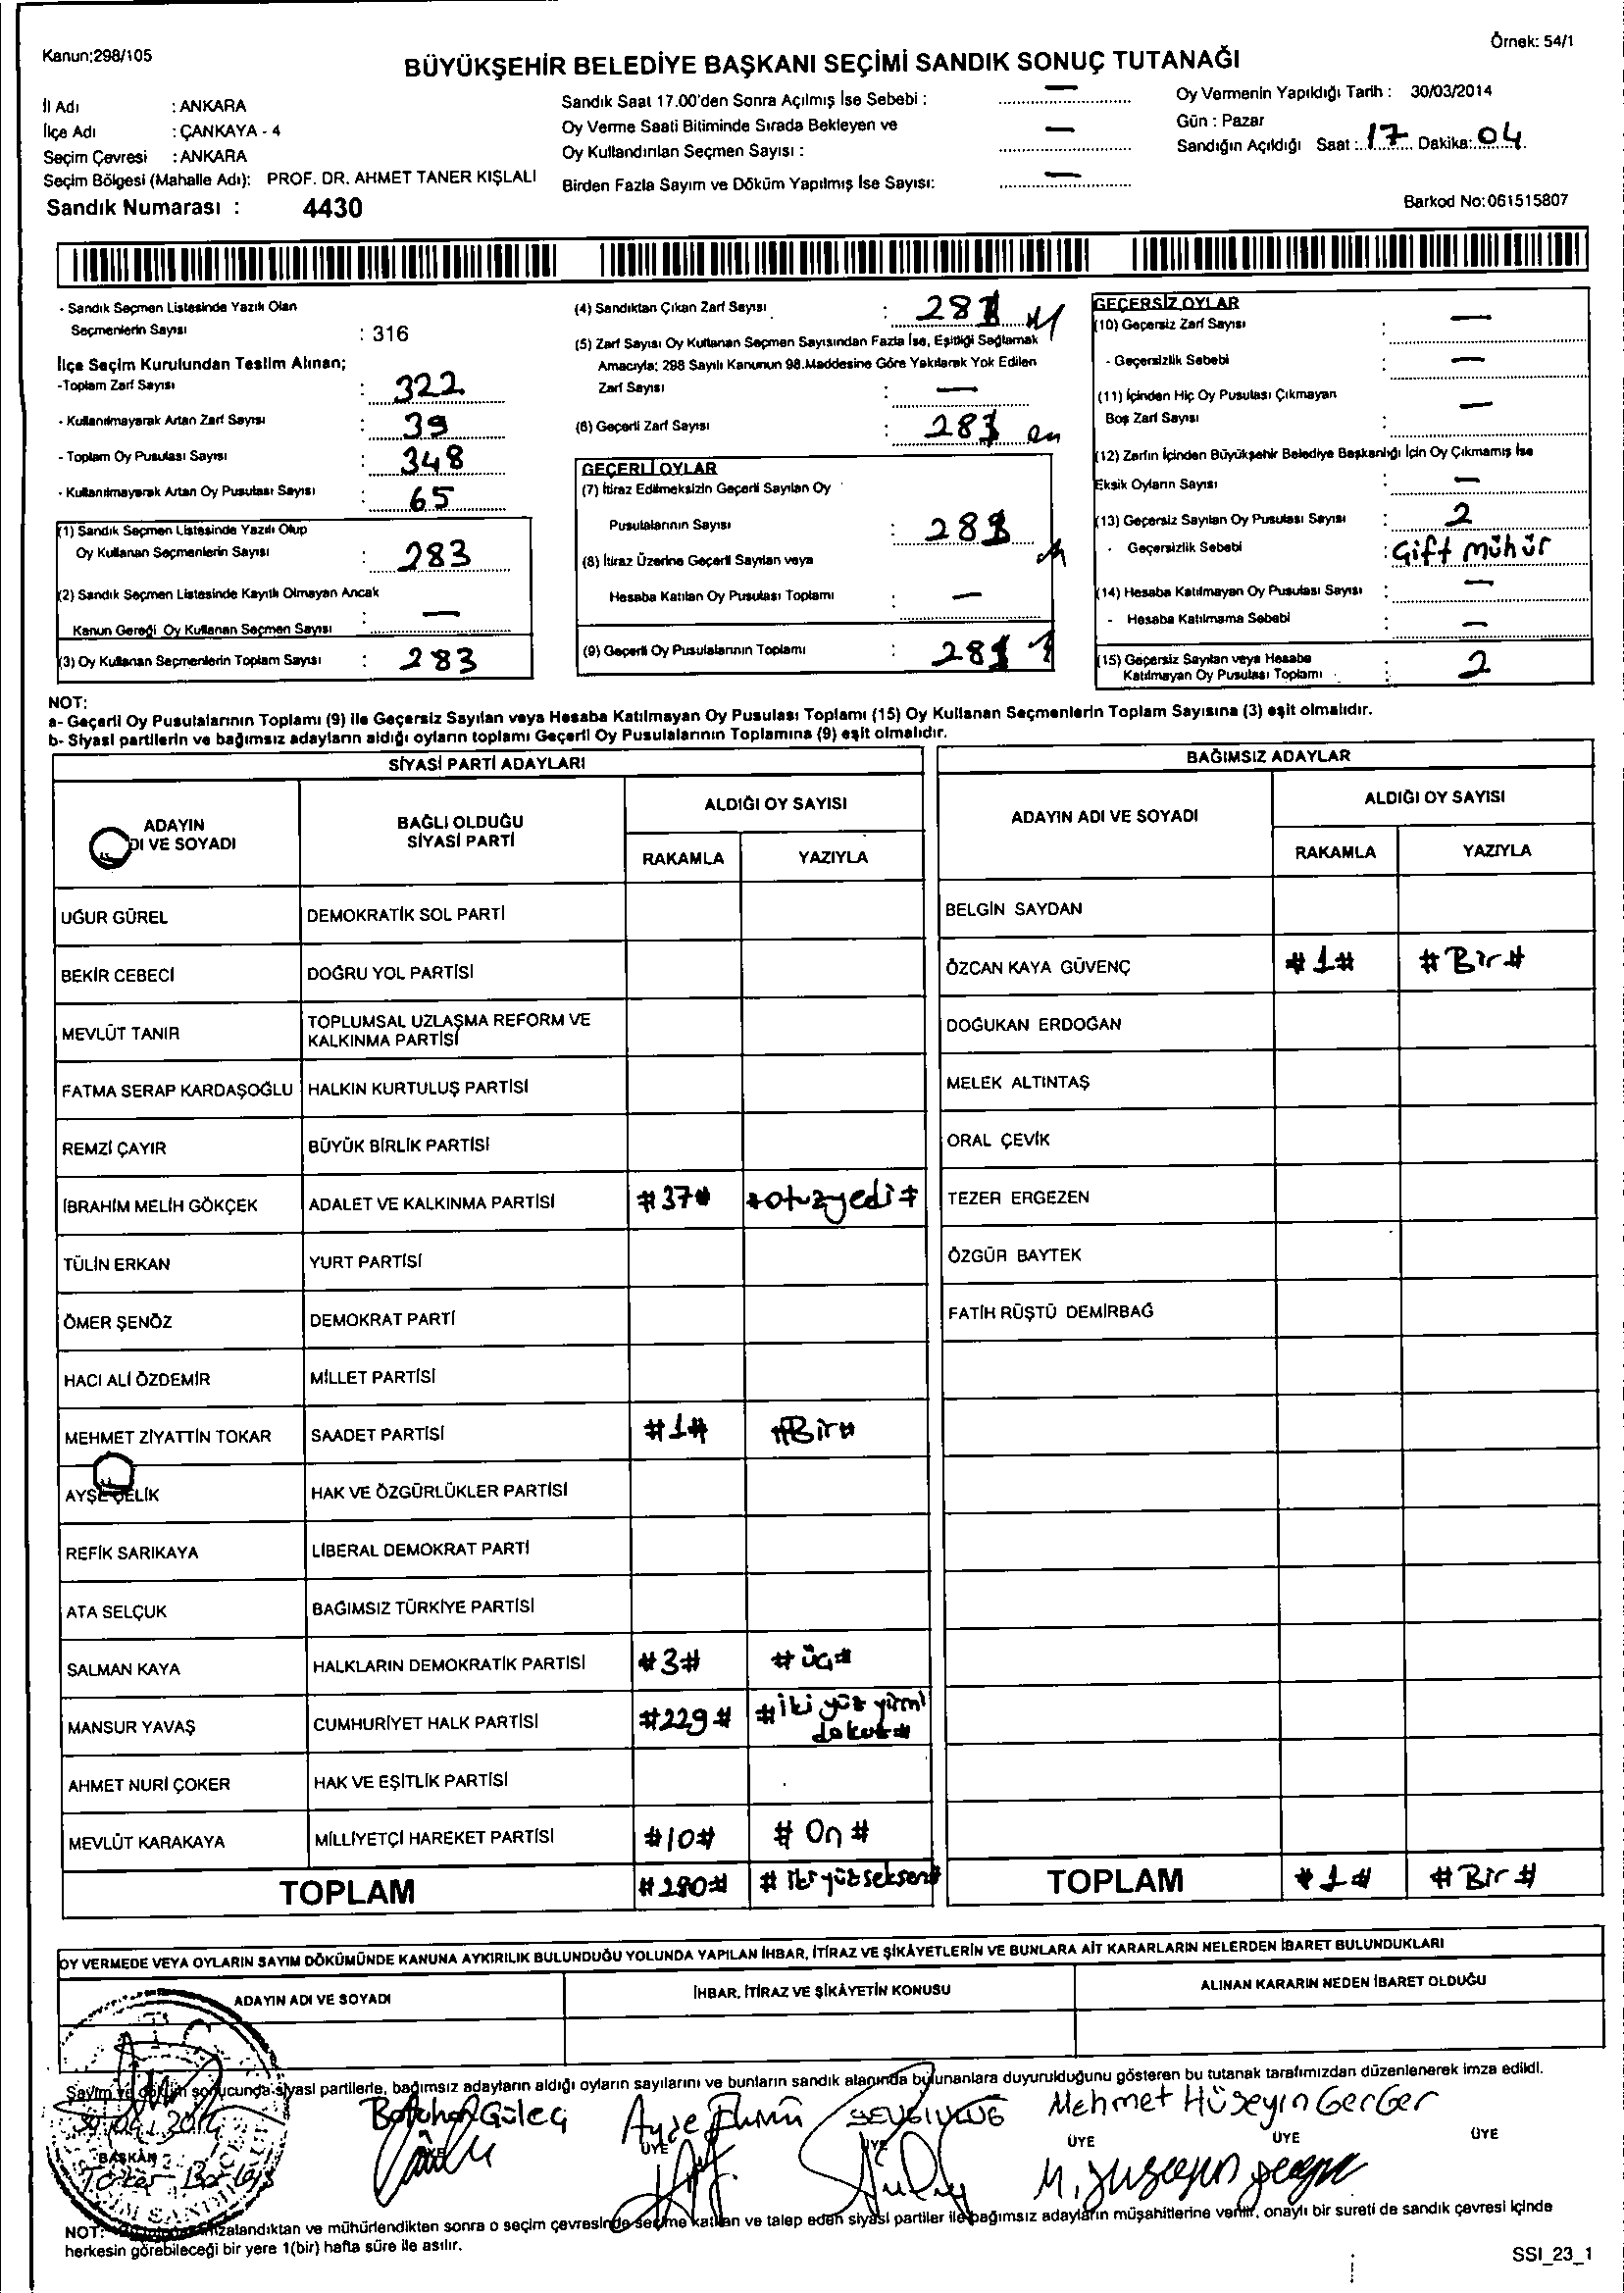 Kanun;298/105
Örnek: 54/1
BÜYÜKŞEHİR BELEDİYE BAŞKANI SEÇİMİ SANDIK SONUÇ TUTANAĞI
İl Adı : ANKARA
İlçe Adı : ÇANKAYA - 4
Seçim Çevresi : ANKARA
Seçim Bölgesi (Mahalle Adı): PROF. DR. AHMET TANER KIŞLALI
Sandık Numarası : 4430
Sandık Saat 17.00'den Sonra Açılmış İse Sebebi : —
Oy Verme Saati Bitiminde Sırada Bekleyen ve
Oy Kullandırılan Seçmen Sayısı : —
Birden Fazla Sayım ve Döküm Yapılmış İse Sayısı: —
Oy Vermenin Yapıldığı Tarih : 30/03/2014
Gün : Pazar
Sandığın Açıldığı Saat : 17 Dakika: 04
Barkod No:061515807
- Sandık Seçmen Listesinde Yazılı Olan
Seçmenlerin Sayısı : 316
İlçe Seçim Kurulundan Teslim Alınan;
-Toplam Zarf Sayısı : 322
- Kullanılmayarak Artan Zarf Sayısı : 39
- Toplam Oy Pusulası Sayısı : 348
- Kullanılmayarak Artan Oy Pusulası Sayısı : 65
(1) Sandık Seçmen Listesinde Yazılı Olup
Oy Kullanan Seçmenlerin Sayısı : 283
(2) Sandık Seçmen Listesinde Kayıtlı Olmayan Ancak
Kanun Gereği Oy Kullanan Seçmen Sayısı : —
(3) Oy Kullanan Seçmenlerin Toplam Sayısı : 283
(4) Sandıktan Çıkan Zarf Sayısı :
(5) Zarf Sayısı Oy Kullanan Seçmen Sayısından Fazla İse, Eşitliği Sağlamak
Amacıyla; 298 Sayılı Kanunun 98.Maddesine Göre Yakılarak Yok Edilen
Zarf Sayısı : —
(6) Geçerli Zarf Sayısı :
GEÇERLİ OYLAR
(7) İtiraz Edilmeksizin Geçerli Sayılan Oy
Pusulalarının Sayısı :
(8) İtiraz Üzerine Geçerli Sayılan veya
Hesaba Katılan Oy Pusulası Toplamı : —
(9) Geçerli Oy Pusulalarının Toplamı :
GEÇERSİZ OYLAR
(10) Geçersiz Zarf Sayısı : —
- Geçersizlik Sebebi : —
(11) İçinden Hiç Oy Pusulası Çıkmayan
Boş Zarf Sayısı : —
(12) Zarfın İçinden Büyükşehir Belediye Başkanlığı İçin Oy Çıkmamış İse
Eksik Oyların Sayısı : —
(13) Geçersiz Sayılan Oy Pusulası Sayısı : 2
- Geçersizlik Sebebi : Çift mühür
(14) Hesaba Katılmayan Oy Pusulası Sayısı : —
- Hesaba Katılmama Sebebi : —
(15) Geçersiz Sayılan veya Hesaba
Katılmayan Oy Pusulası Toplamı : 2
NOT:
a- Geçerli Oy Pusulalarının Toplamı (9) ile Geçersiz Sayılan veya Hesaba Katılmayan Oy Pusulası Toplamı (15) Oy Kullanan Seçmenlerin Toplam Sayısına (3) eşit olmalıdır.
b- Siyasi partilerin ve bağımsız adayların aldığı oyların toplamı Geçerli Oy Pusulalarının Toplamına (9) eşit olmalıdır.
SİYASİ PARTİ ADAYLARI
ADAYIN
DI VE SOYADI
BAĞLI OLDUĞU
SİYASİ PARTİ
ALDIĞI OY SAYISI
RAKAMLA YAZIYLA
UĞUR GÜREL DEMOKRATİK SOL PARTİ
BEKİR CEBECİ DOĞRU YOL PARTİSİ
MEVLÜT TANIR TOPLUMSAL UZLAŞMA REFORM VE
KALKINMA PARTİSİ
FATMA SERAP KARDAŞOĞLU HALKIN KURTULUŞ PARTİSİ
REMZİ ÇAYIR BÜYÜK BİRLİK PARTİSİ
İBRAHİM MELİH GÖKÇEK ADALET VE KALKINMA PARTİSİ #37# #otuzyedi#
TÜLİN ERKAN YURT PARTİSİ
ÖMER ŞENÖZ DEMOKRAT PARTİ
HACI ALİ ÖZDEMİR MİLLET PARTİSİ
MEHMET ZİYATTİN TOKAR SAADET PARTİSİ #1# #Bir#
AYŞE ÇELİK HAK VE ÖZGÜRLÜKLER PARTİSİ
REFİK SARIKAYA LİBERAL DEMOKRAT PARTİ
ATA SELÇUK BAĞIMSIZ TÜRKİYE PARTİSİ
SALMAN KAYA HALKLARIN DEMOKRATİK PARTİSİ #3# #üç#
MANSUR YAVAŞ CUMHURİYET HALK PARTİSİ #229# #iki yüz yirmi
dokuz#
AHMET NURİ ÇOKER HAK VE EŞİTLİK PARTİSİ
MEVLÜT KARAKAYA MİLLİYETÇİ HAREKET PARTİSİ #10# #On#
TOPLAM #280# #iki yüz seksen#
BAĞIMSIZ ADAYLAR
ADAYIN ADI VE SOYADI
ALDIĞI OY SAYISI
RAKAMLA YAZIYLA
BELGİN SAYDAN
ÖZCAN KAYA GÜVENÇ #1# #Bir#
DOĞUKAN ERDOĞAN
MELEK ALTINTAŞ
ORAL ÇEVİK
TEZER ERGEZEN
ÖZGÜR BAYTEK
FATİH RÜŞTÜ DEMİRBAĞ
TOPLAM #1# #Bir#
OY VERMEDE VEYA OYLARIN SAYIM DÖKÜMÜNDE KANUNA AYKIRILIK BULUNDUĞU YOLUNDA YAPILAN İHBAR, İTİRAZ VE ŞİKÂYETLERİN VE BUNLARA AİT KARARLARIN NELERDEN İBARET BULUNDUKLARI
ADAYIN ADI VE SOYADI İHBAR, İTİRAZ VE ŞİKÂYETİN KONUSU ALINAN KARARIN NEDEN İBARET OLDUĞU
Sayım ve döküm sonucunda siyasi partilerle, bağımsız adayların aldığı oyların sayılarını ve bunların sandık alanında bulunanlara duyurulduğunu gösteren bu tutanak tarafımızdan düzenlenerek imza edildi.
Güleç Ayşe Mehmet Hüseyin GerGer
BAŞKAN ÜYE ÜYE ÜYE ÜYE ÜYE
NOT: imzalandıktan ve mühürlendikten sonra o seçim çevresinde seçime katılan ve talep eden siyasi partiler ile bağımsız adayların müşahitlerine verilir, onaylı bir sureti de sandık çevresi içinde
herkesin görebileceği bir yere 1(bir) hafta süre ile asılır.
SSI_23_1